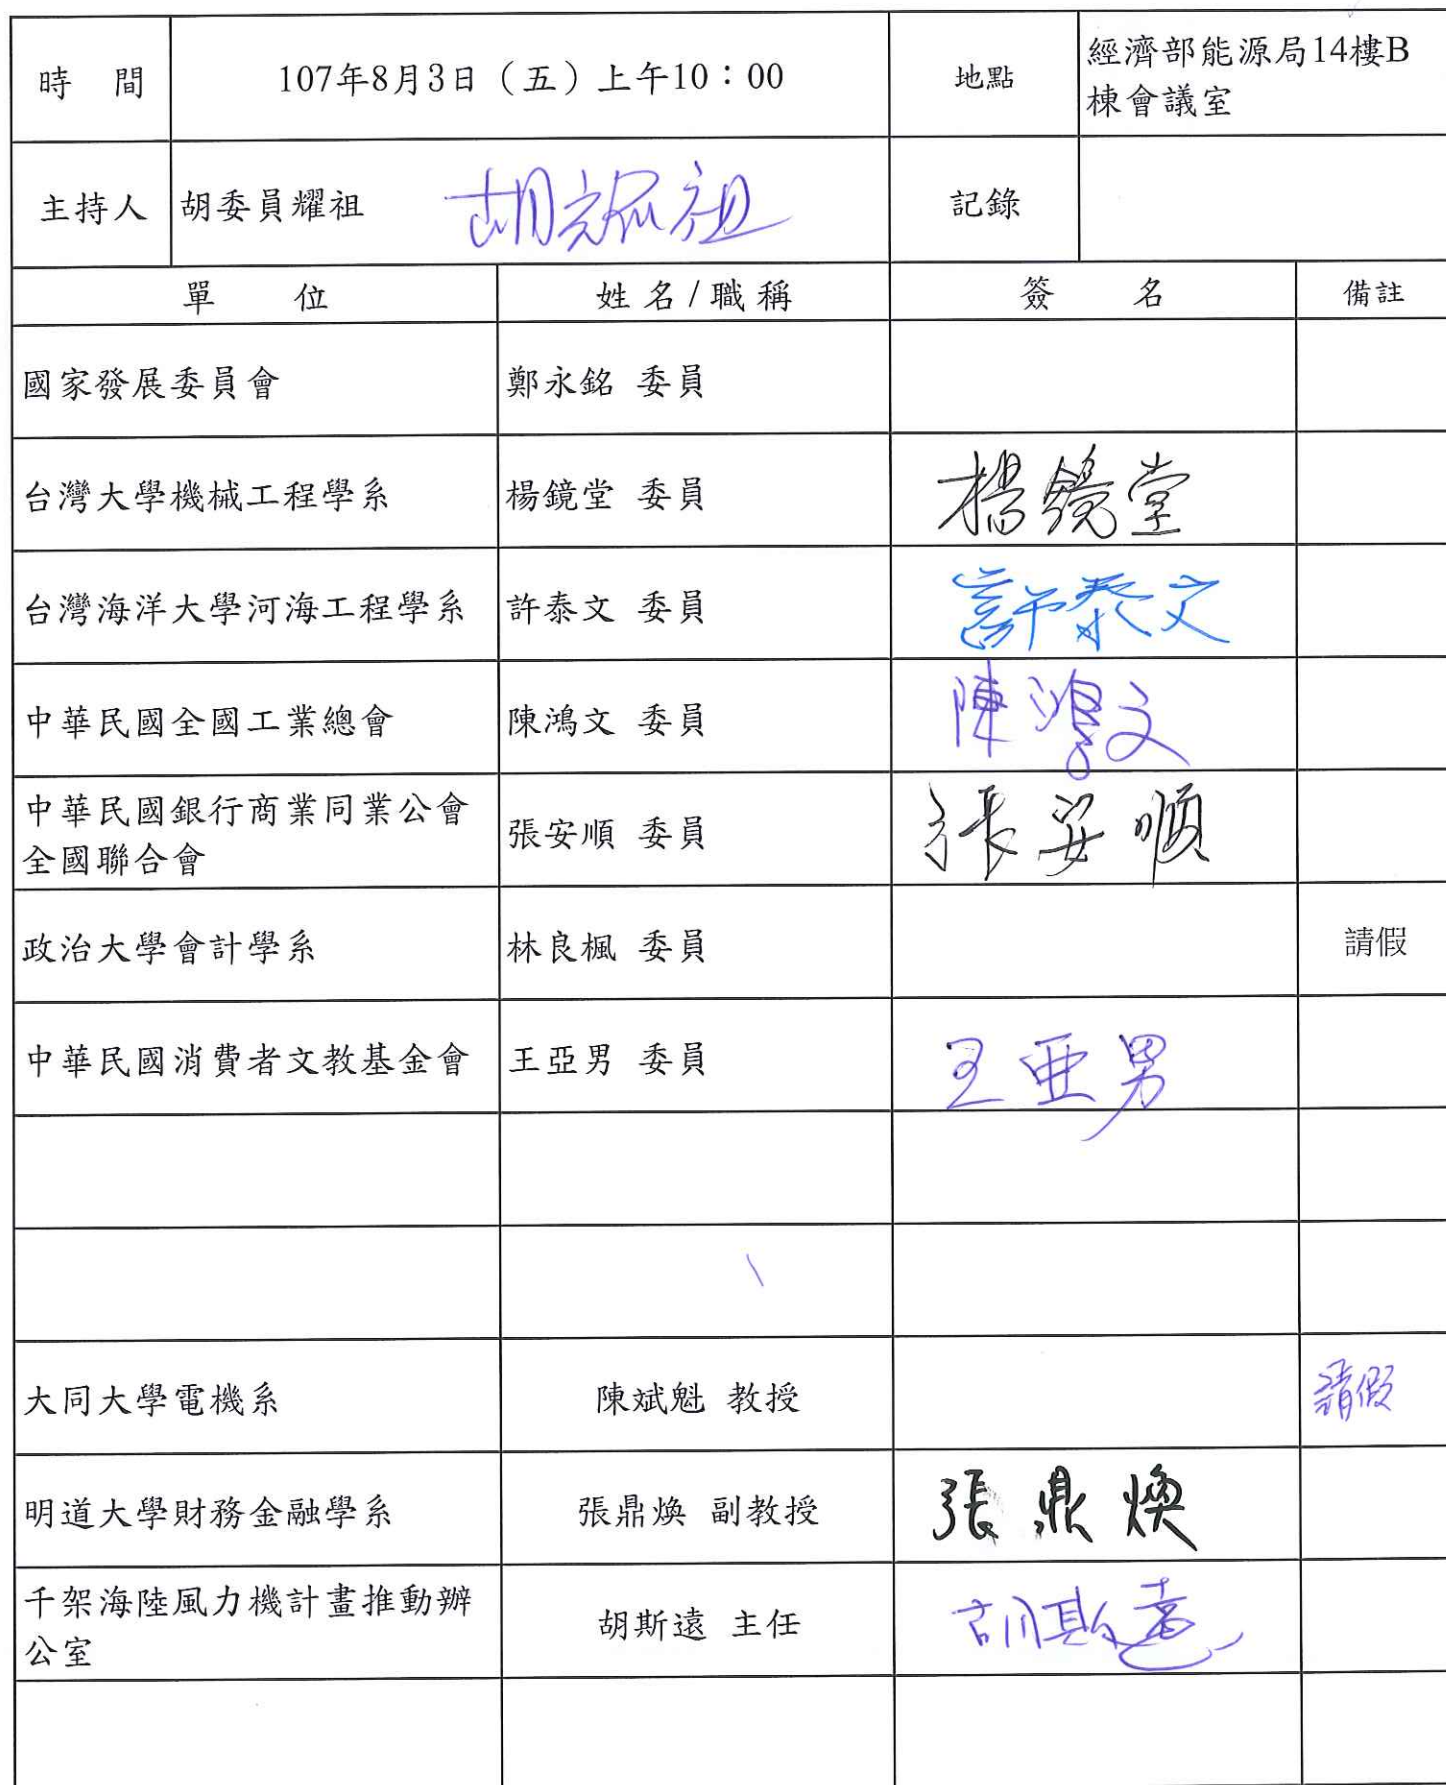 時 間 107年8月3日（五）上午10：00 地點 經濟部能源局14樓B
棟會議室
主持人 胡委員耀祖 胡耀祖 記錄
單 位 姓名/職稱 簽 名 備註
國家發展委員會 鄭永銘 委員
台灣大學機械工程學系 楊鏡堂 委員 楊鏡堂
台灣海洋大學河海工程學系 許泰文 委員 許泰文
中華民國全國工業總會 陳鴻文 委員 陳鴻文
中華民國銀行商業同業公會
全國聯合會 張安順 委員 張安順
政治大學會計學系 林良楓 委員 請假
中華民國消費者文教基金會 王亞男 委員 王亞男
大同大學電機系 陳斌魁 教授 請假
明道大學財務金融學系 張鼎煥 副教授 張鼎煥
千架海陸風力機計畫推動辦
公室 胡斯遠 主任 胡斯遠